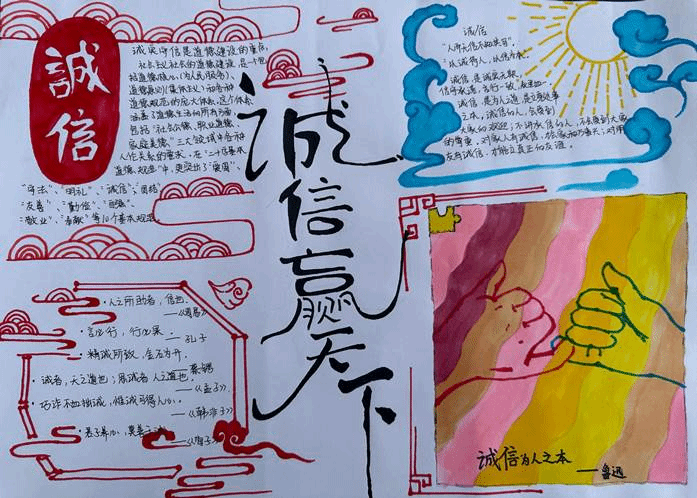 誠信
诚实守信是道德建设的重点,
社会主义社会的道德建设,是一个包
括道德核心(为人民服务)、
道德原则(集体主义)和各种
道德规范的庞大体系,这个体系
涵盖了道德生活的所有方面,
包括“社会公德、职业道德、
家庭美德”三大领域中各种
人伦关系的要求。在“二十字基本
道德规范”中,更突出了“爱国”、
“守法”、“明礼”、“诚信”、“团结”
“友善”、“勤俭”、“自强”、
“敬业”、“奉献”等10个基本规范。
诚信赢天下
诚信
“人而无信不知其可”
以诚待人,以信养本。
诚信是诚实无欺,
信守承诺,言行一致,表里如一。
诚信,是为人之道,是立身处事
之本。诚信的人,会受到
大家的欢迎;不讲诚信的人,不会受到大家
的尊重。对家人有诚信,
友有诚信,才能立真正的友谊。
·人之所助者,信也.
——《周易》
·言必行,行必果.
——孔子
·精诚所致,金石为开.
——蔡锷
·诚者,天之道也;思诚者 人之道也.
——《孟子》
·巧诈不如拙诚,惟诚可得人心.
——《韩非子》
·君子养心,莫善于诚
——《荀子》
诚信为人之本
——鲁迅